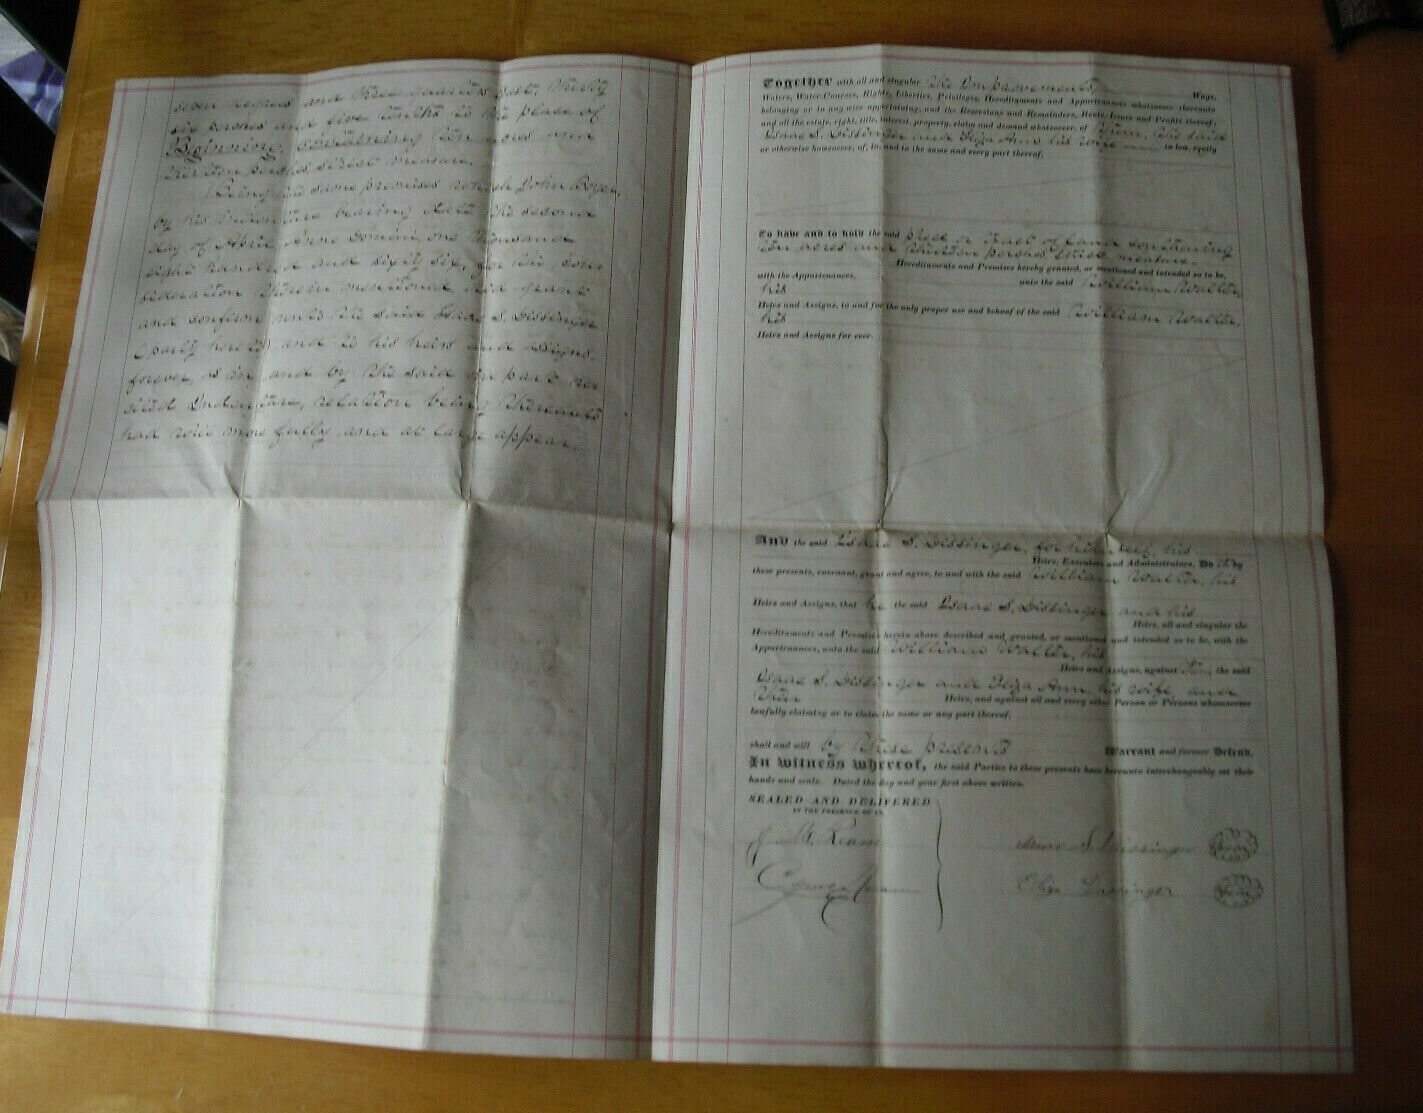 seven degrees and three quarters West, thirty
six perches and five tenths to the place of
Beginning, Containing ten acres and
thirteen perches strict measure.
Being the same premises which John Boyer,
by his Indenture bearing date the second
day of April Anno Domini, one thousand
eight hundred and sixty six, for the con
sideration therein mentioned, did grant
and confirm unto the said Isaac S. Dissinger
(party hereto) and to his heirs and assigns,
forever, as in and by the said in part re
cited Indenture, relation being thereunto
had will more fully and at large appear.
Together with all and singular the Improvements, Ways,
Waters, Water-Courses, Rights, Liberties, Privileges, Hereditaments and Appurtenances whatsoever thereunto
belonging or in any wise appertaining, and the Reversions and Remainders, Rents, Issues and Profits thereof;
and all the estate, right, title, interest, property, claim and demand whatsoever, of them, the said
Isaac S. Dissinger and Eliza Ann his wife in law, equity
or otherwise howsoever, of, in, and to the same and every part thereof.
To have and to hold the said piece or tract of land containing
ten acres and thirteen perches, strict measure.
Hereditaments and Premises hereby granted, or mentioned and intended so to be,
with the Appurtenances, unto the said William Walter,
his
Heirs and Assigns, to and for the only proper use and behoof of the said William Walter,
his
Heirs and Assigns for ever.
And the said Isaac S. Dissinger, for himself, his
Heirs, Executors and Administrators, Do th by
these presents, covenant, grant and agree, to and with the said William Walter, his
Heirs and Assigns, that he the said Isaac S. Dissinger and his
Heirs, all and singular the
Hereditaments and Premises herein above described and granted, or mentioned and intended so to be, with the
Appurtenances, unto the said William Walter, his
Heirs and Assigns, against him, the said
Isaac S. Dissinger and Eliza Ann, his wife, and
their Heirs, and against all and every other Person or Persons whomsoever
lawfully claiming or to claim the same or any part thereof,
shall and will by these presents Warrant and forever Defend.
In witness whereof, the said Parties to these presents have hereunto interchangeably set their
hands and seals. Dated the day and year first above written.
SEALED AND DELIVERED
IN THE PRESENCE OF US,
Isaac S. Dissinger Seal
Eliza Dissinger Seal